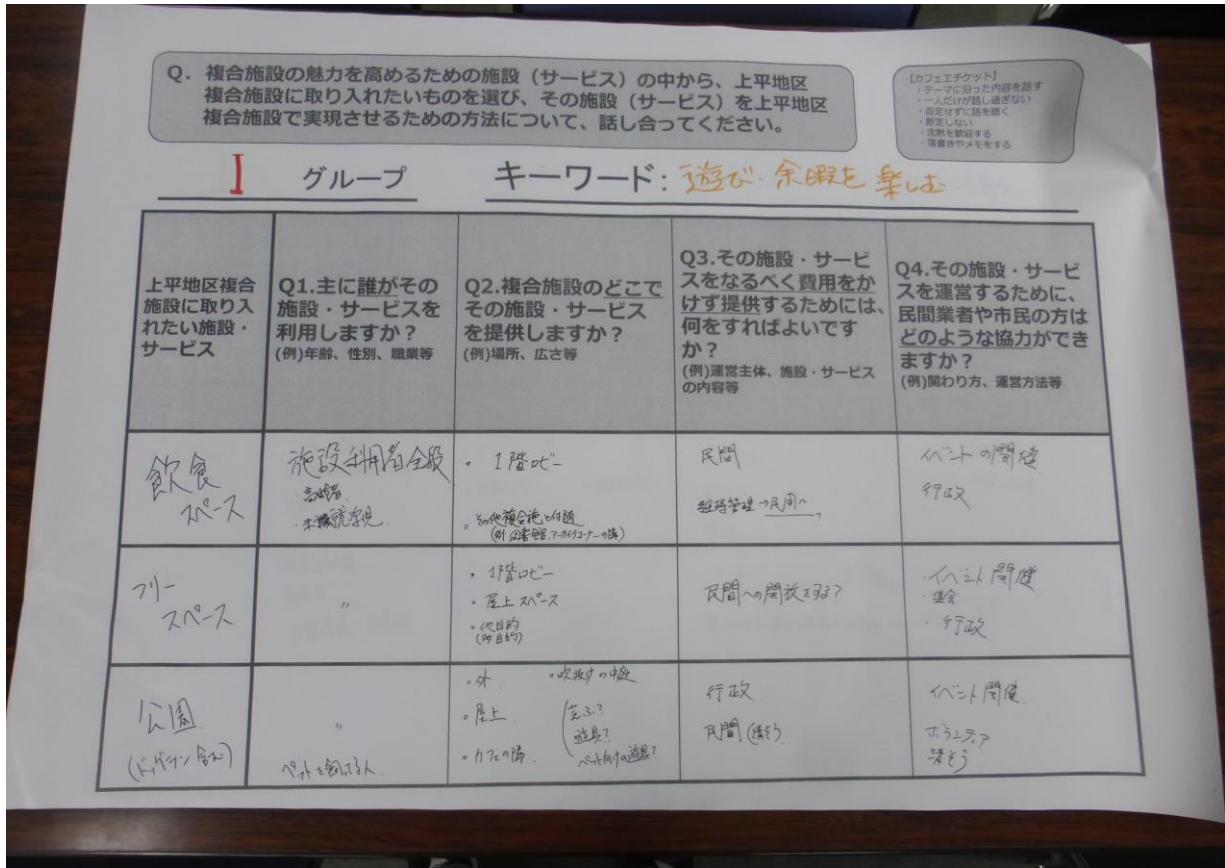 Q. 複合施設の魅力を高めるための施設（サービス）の中から、上平地区
複合施設に取り入れたいものを選び、その施設（サービス）を上平地区
複合施設で実現させるための方法について、話し合ってください。
【カフェエチケット】
・テーマに沿った内容を話す
・一人だけが話し過ぎない
・否定せずに話を聴く
・断定しない
・沈黙を歓迎する
・落書きやメモをする
I グループ キーワード：遊び・余暇を楽しむ
上平地区複合
施設に取り入
れたい施設・
サービス
Q1.主に誰がその
施設・サービスを
利用しますか？
(例)年齢、性別、職業等
Q2.複合施設のどこで
その施設・サービス
を提供しますか？
(例)場所、広さ等
Q3.その施設・サービ
スをなるべく費用をか
けず提供するためには、
何をすればよいです
か？
(例)運営主体、施設・サービス
の内容等
Q4.その施設・サービ
スを運営するために、
民間業者や市民の方は
どのような協力ができ
ますか？
(例)関わり方、運営方法等
飲食
スペース
施設利用者全般
・高齢者
・未就学児
・1階ロビー
・その他複合施
(例 図書館、アーカイブコーナーの隣)
民間
維持管理→民間へ
イベントの開催
行政
フリー
スペース
〃
・1階ロビー
・屋上スペース
(多目的)
民間への開放をする?
・イベント開催
・集会
・行政
公園
(ドッグラン含む)
〃
ペットを飼ってる人
・外
・吹抜けの中庭
・屋上
・カフェの隣
芝ふ?
遊具?
ペット向けの遊具?
行政
民間(清そう)
イベント開催
ボランティア
清そう